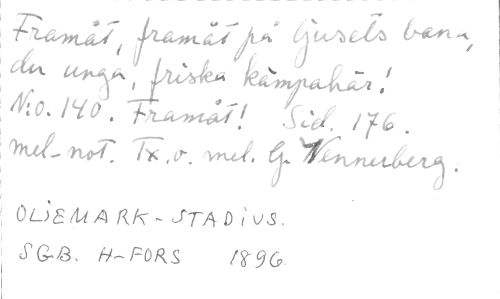 Framåt, framåt på ljusets bana,
du unga, friska kämpahär!
N:o. 140. Framåt! Sid. 176.
mel-not. Tx. o. mel. G. Wennerberg.
OLIEMARK-STADIUS.
SGB. H-FORS 1896.